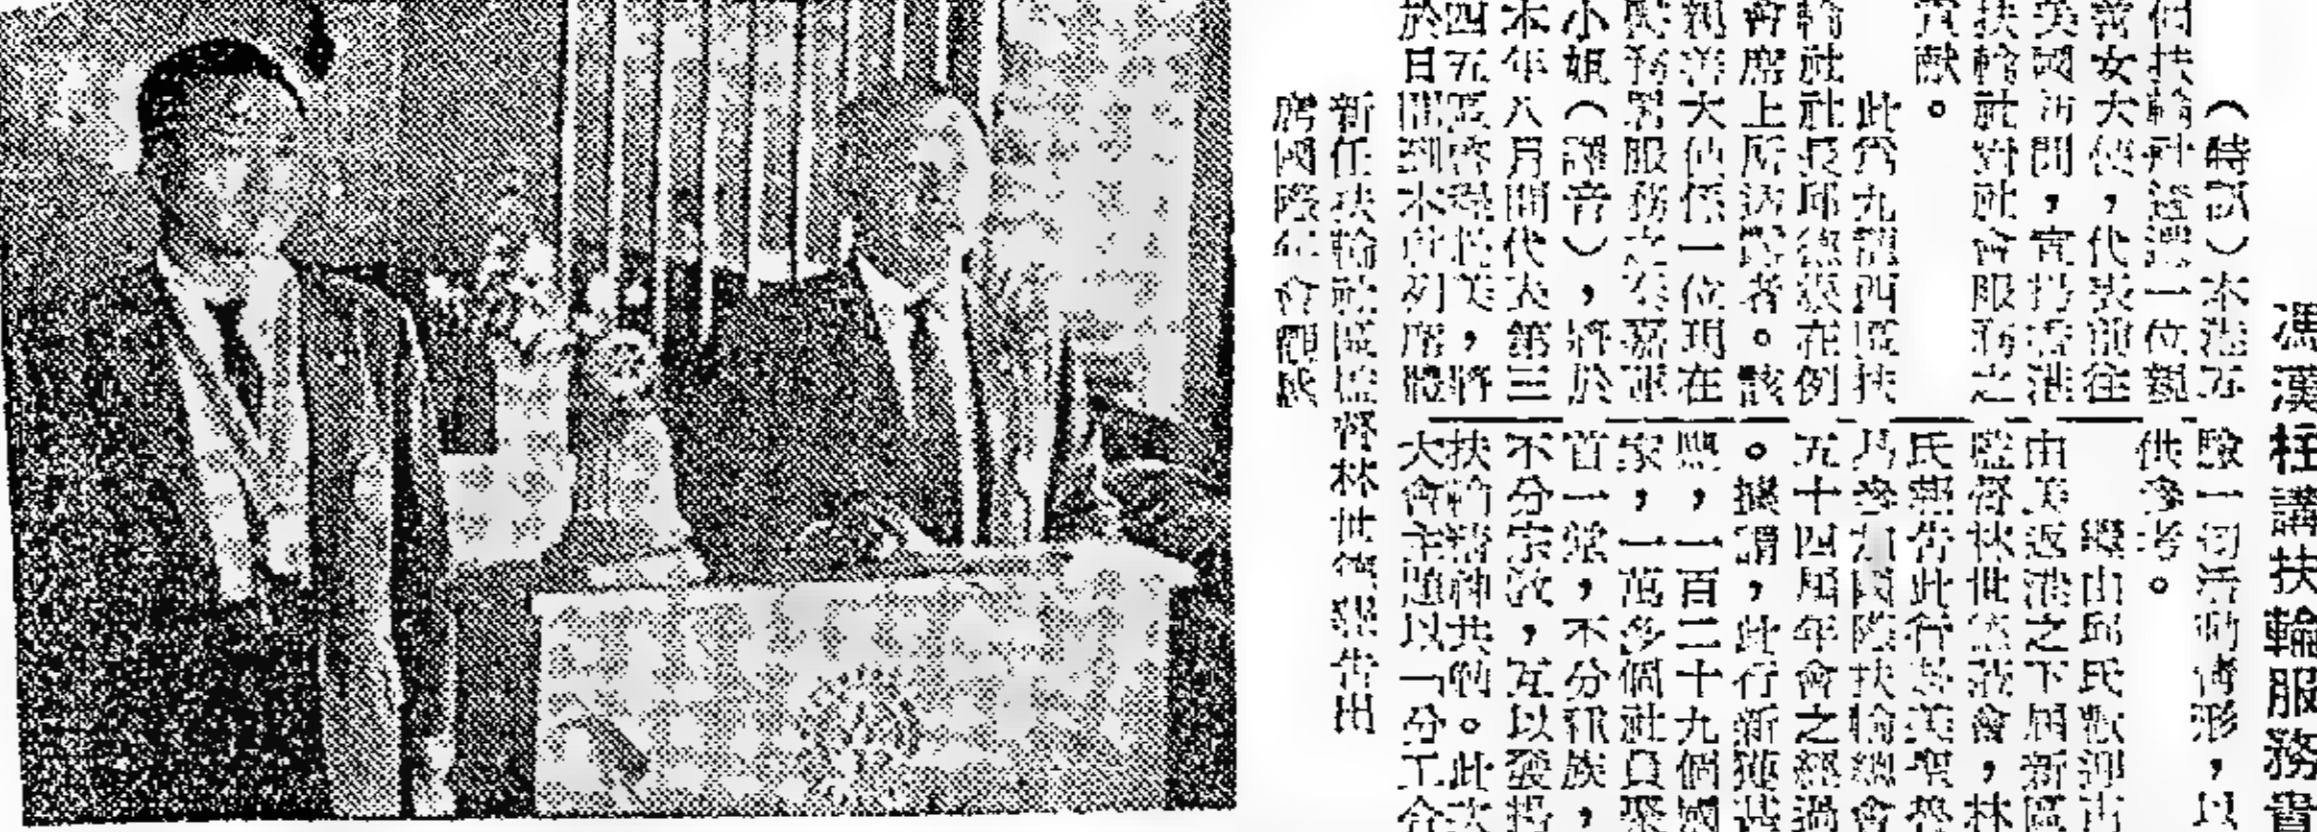 馮漢柱講扶輪服務實
（特訊）本港五
個扶輪社遴選一位親
善女大使，代表前往
美國訪問，宣揚香港
扶輪社對社會服務之
貢獻。
此為九龍西區扶
輪社社長邱德根在例
會席上所透露者。該
親善大使係一位現在
服務之
小姐（譯音），將於
本年八月間代表第三
四五區啓程赴美，將
於日間到本會列席體
驗一切活動情形，以
供參考。
繼由邱氏歡迎甫
由美返港之下屆新區
監督林世 蒞會，林
氏報告此行
乃參加國際扶輪總會
五十四屆年會之經過
。據謂，此行新獲甚
，一百二十九個國
家，一萬多個社員聚
首一堂，不分種族，
不分宗教，互以發揚
扶輪精神共勉。此次
大會主題以「分工合
新任扶輪社區監督林世 報告出
席國際年會觀感